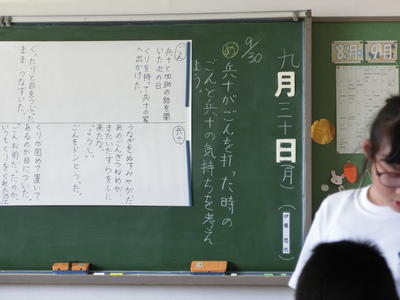 8月 9月
九月三十日(月)
9/30
め 兵十がごんを打った時の
ごんと兵十の気持ちを考え
よう。
ごん
兵十と加助の話を聞
いた次の日
くりを持って兵十の家
へ出かけた。
ぐったりと目をつぶった
まま、うなずいた。
兵十
うなぎをぬすみやがった
あのごんぎつねめが
またいたずらをしに
ようし。
ごんをドンとうった。
くりが固めて置いて
あるのが目についた。